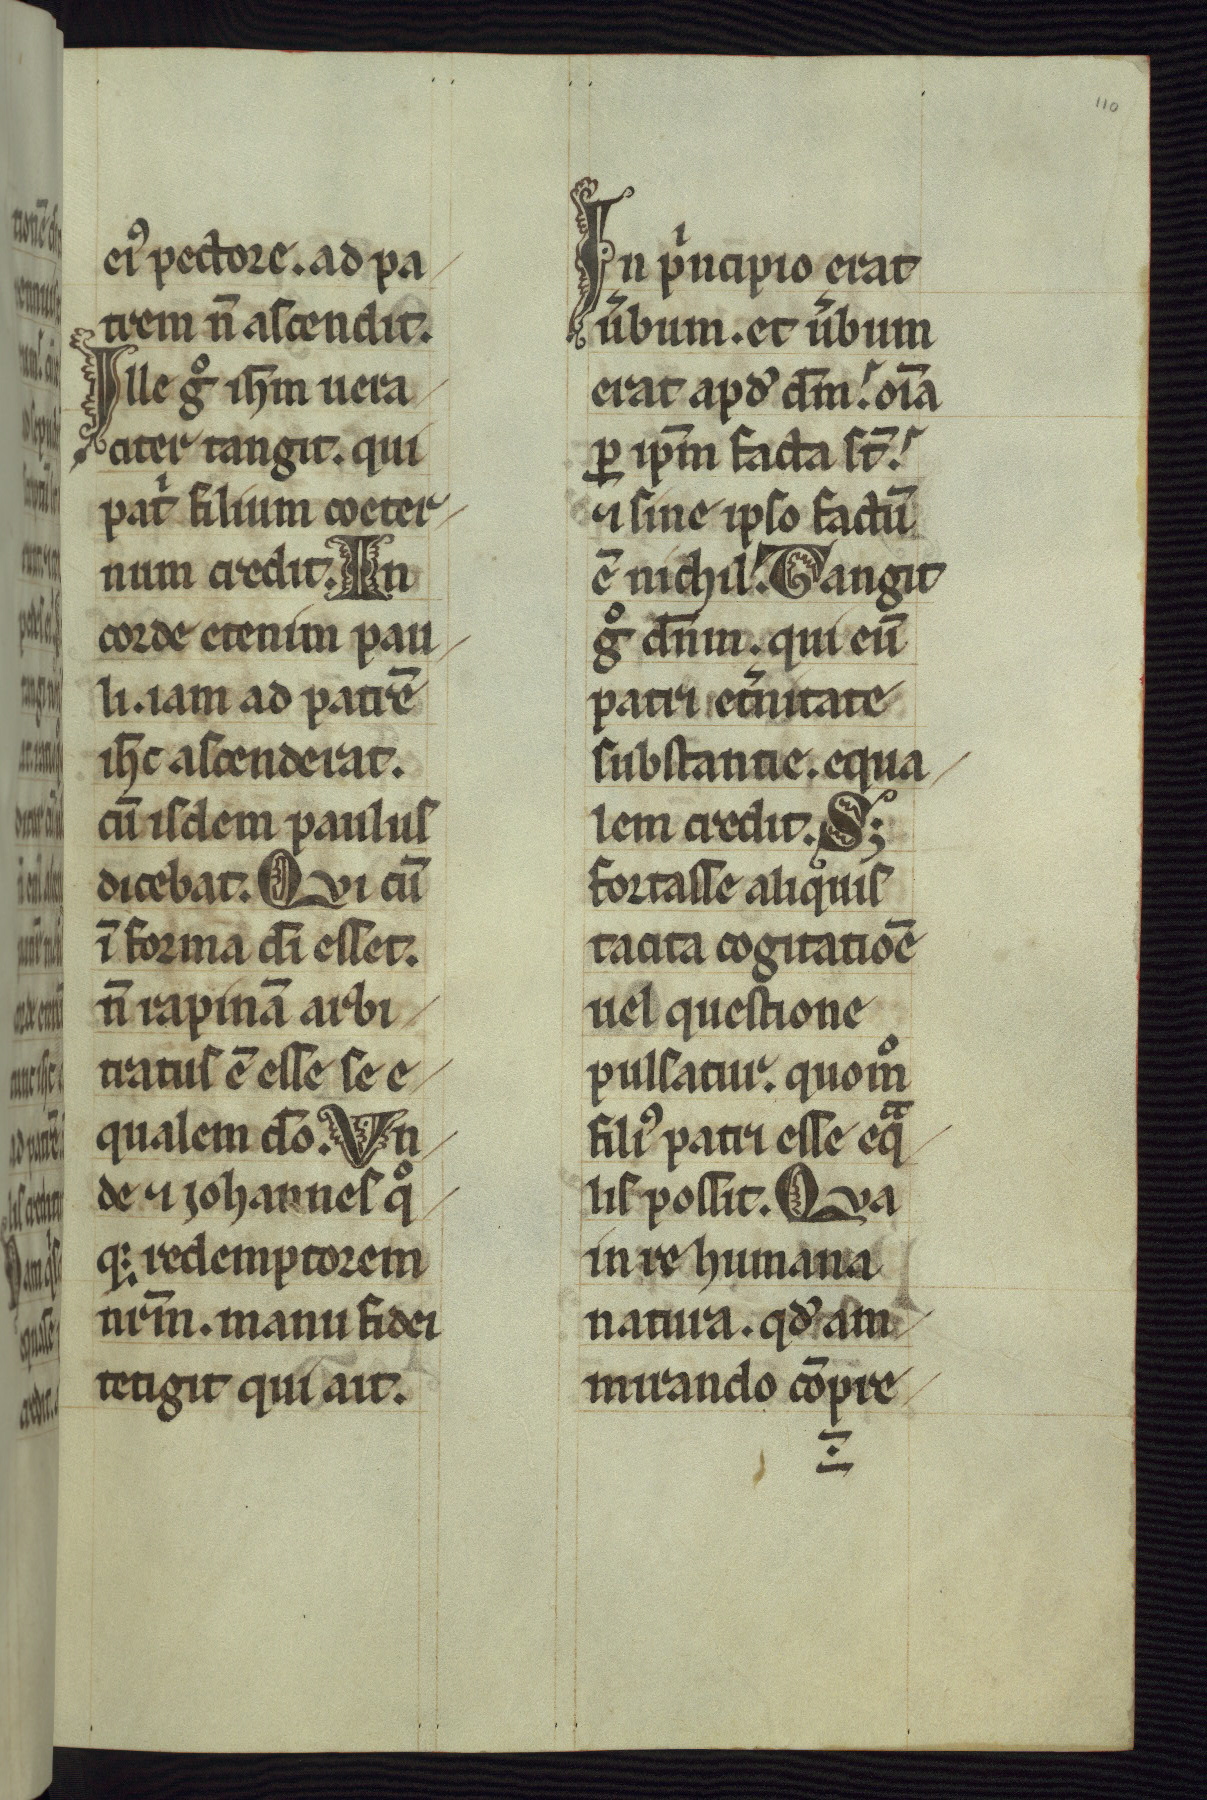 110
ei᷒ pectore. ad pa
trem n̄ ascendit.
Ille gͦ ih̄m uera
citer tangit. qui
patͥ filium coeter
num credit. In
corde etenim pau
li. iam ad patrē
ih̄c ascenderat.
cū isdem paulus
dicebat. Qvi cū
ī forma dī esset.
n̄ rapinā arbi
tratus ē esse se e
qualem dō. Vn
de ⁊ iohannes qͦ
q; redemptorem
nr̄m. manu fidei
tetigit qui ait.
In pͥncipio erat
u̓bum. et u̓bum
erat apd̓ dm̄. oīa
ꝑ ip̄m facta st̄.
⁊ sine ipso factū
ē nichil. Tangit
gͦ dn̄m. qui eū
patri et̓nitate
substantie. equa
lem credit. S;
fortasse aliqͦuis
tacita cogitatiōe
uel questione
pulsatur. quom̊
fili᷒ patri esse eqᷓ
lis possit. Qva
in re humana
natura. qd̓ am
mirando cōpre